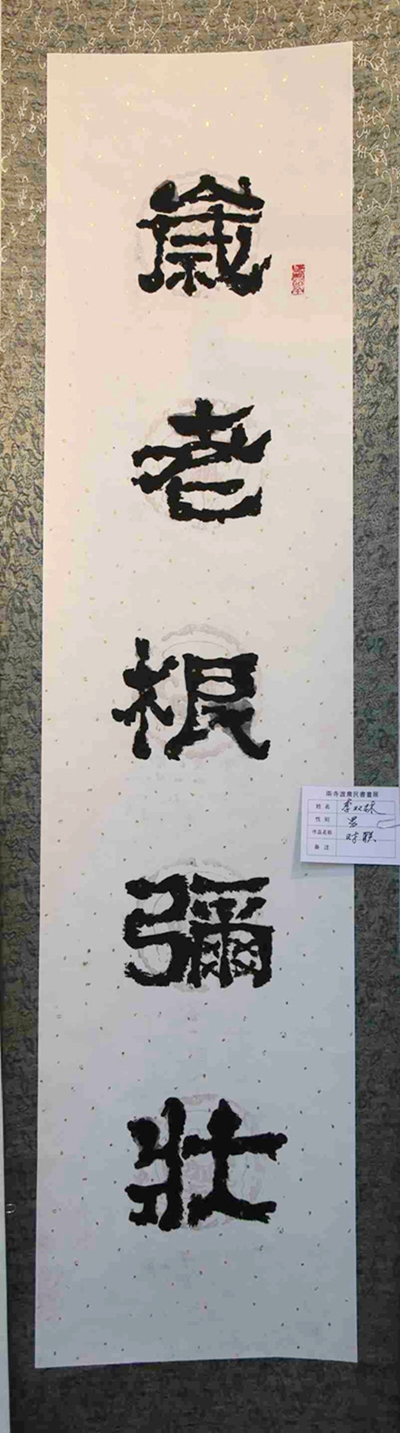 歲老根彌壯
姓名
性别 男
作品名称 对联
备注